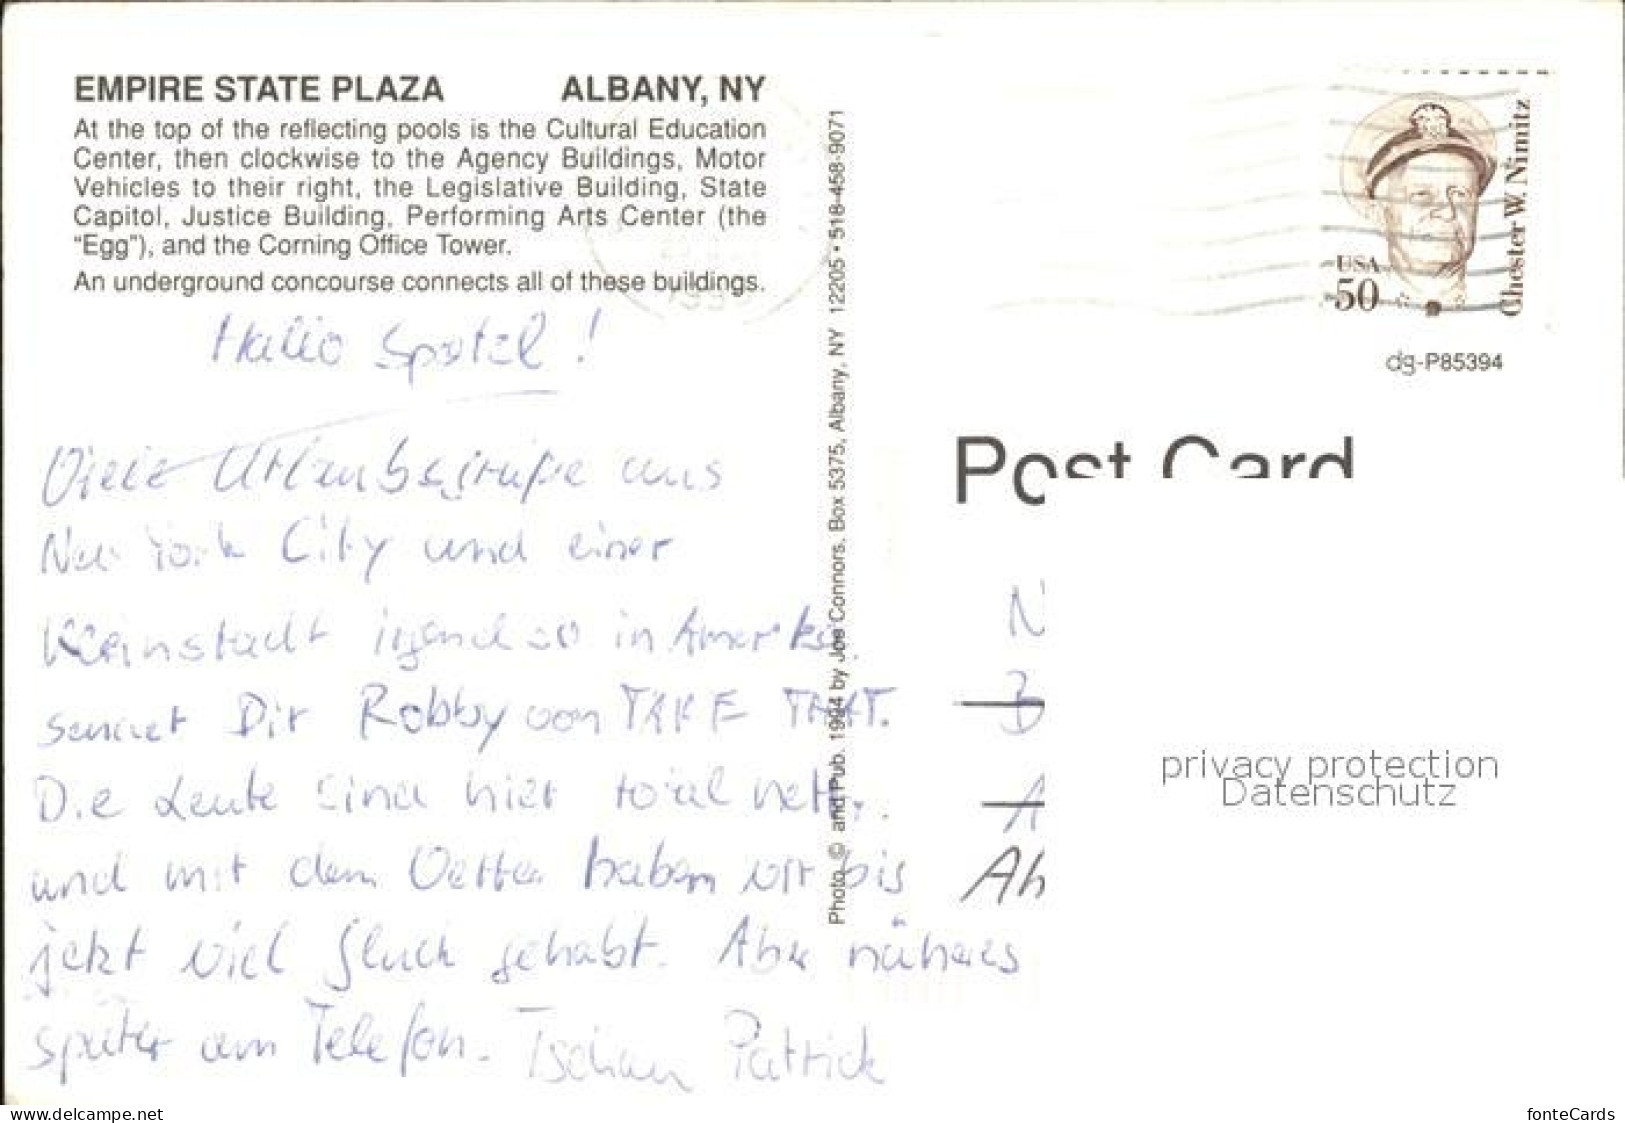 EMPIRE STATE PLAZA ALBANY, NY
At the top of the reflecting pools is the Cultural Education
Center, then clockwise to the Agency Buildings, Motor
Vehicles to their right, the Legislative Building, State
Capitol, Justice Building, Performing Arts Center (the
"Egg"), and the Corning Office Tower.
An underground concourse connects all of these buildings.
Hallo Spatzl!
Viele Urlaubsgrüße aus
New York City und einer
Kleinstadt irgendwo in Amerika
sendet Dir Robby von TAKE THAT.
Die Leute sind hier total nett.
und mit dem Wetter haben wir bis
jetzt viel Glück gehabt. Aber näheres
später am Telefon. Tschau Patrick
Photo © and Pub. 1994 by Joe Connors, Box 5375, Albany, NY 12205 • 518-458-9071
Chester W. Nimitz
USA
50
dg-P85394
Post Card
N
B
A
Ah
privacy protection
Datenschutz
www.delcampe.net
fonteCards